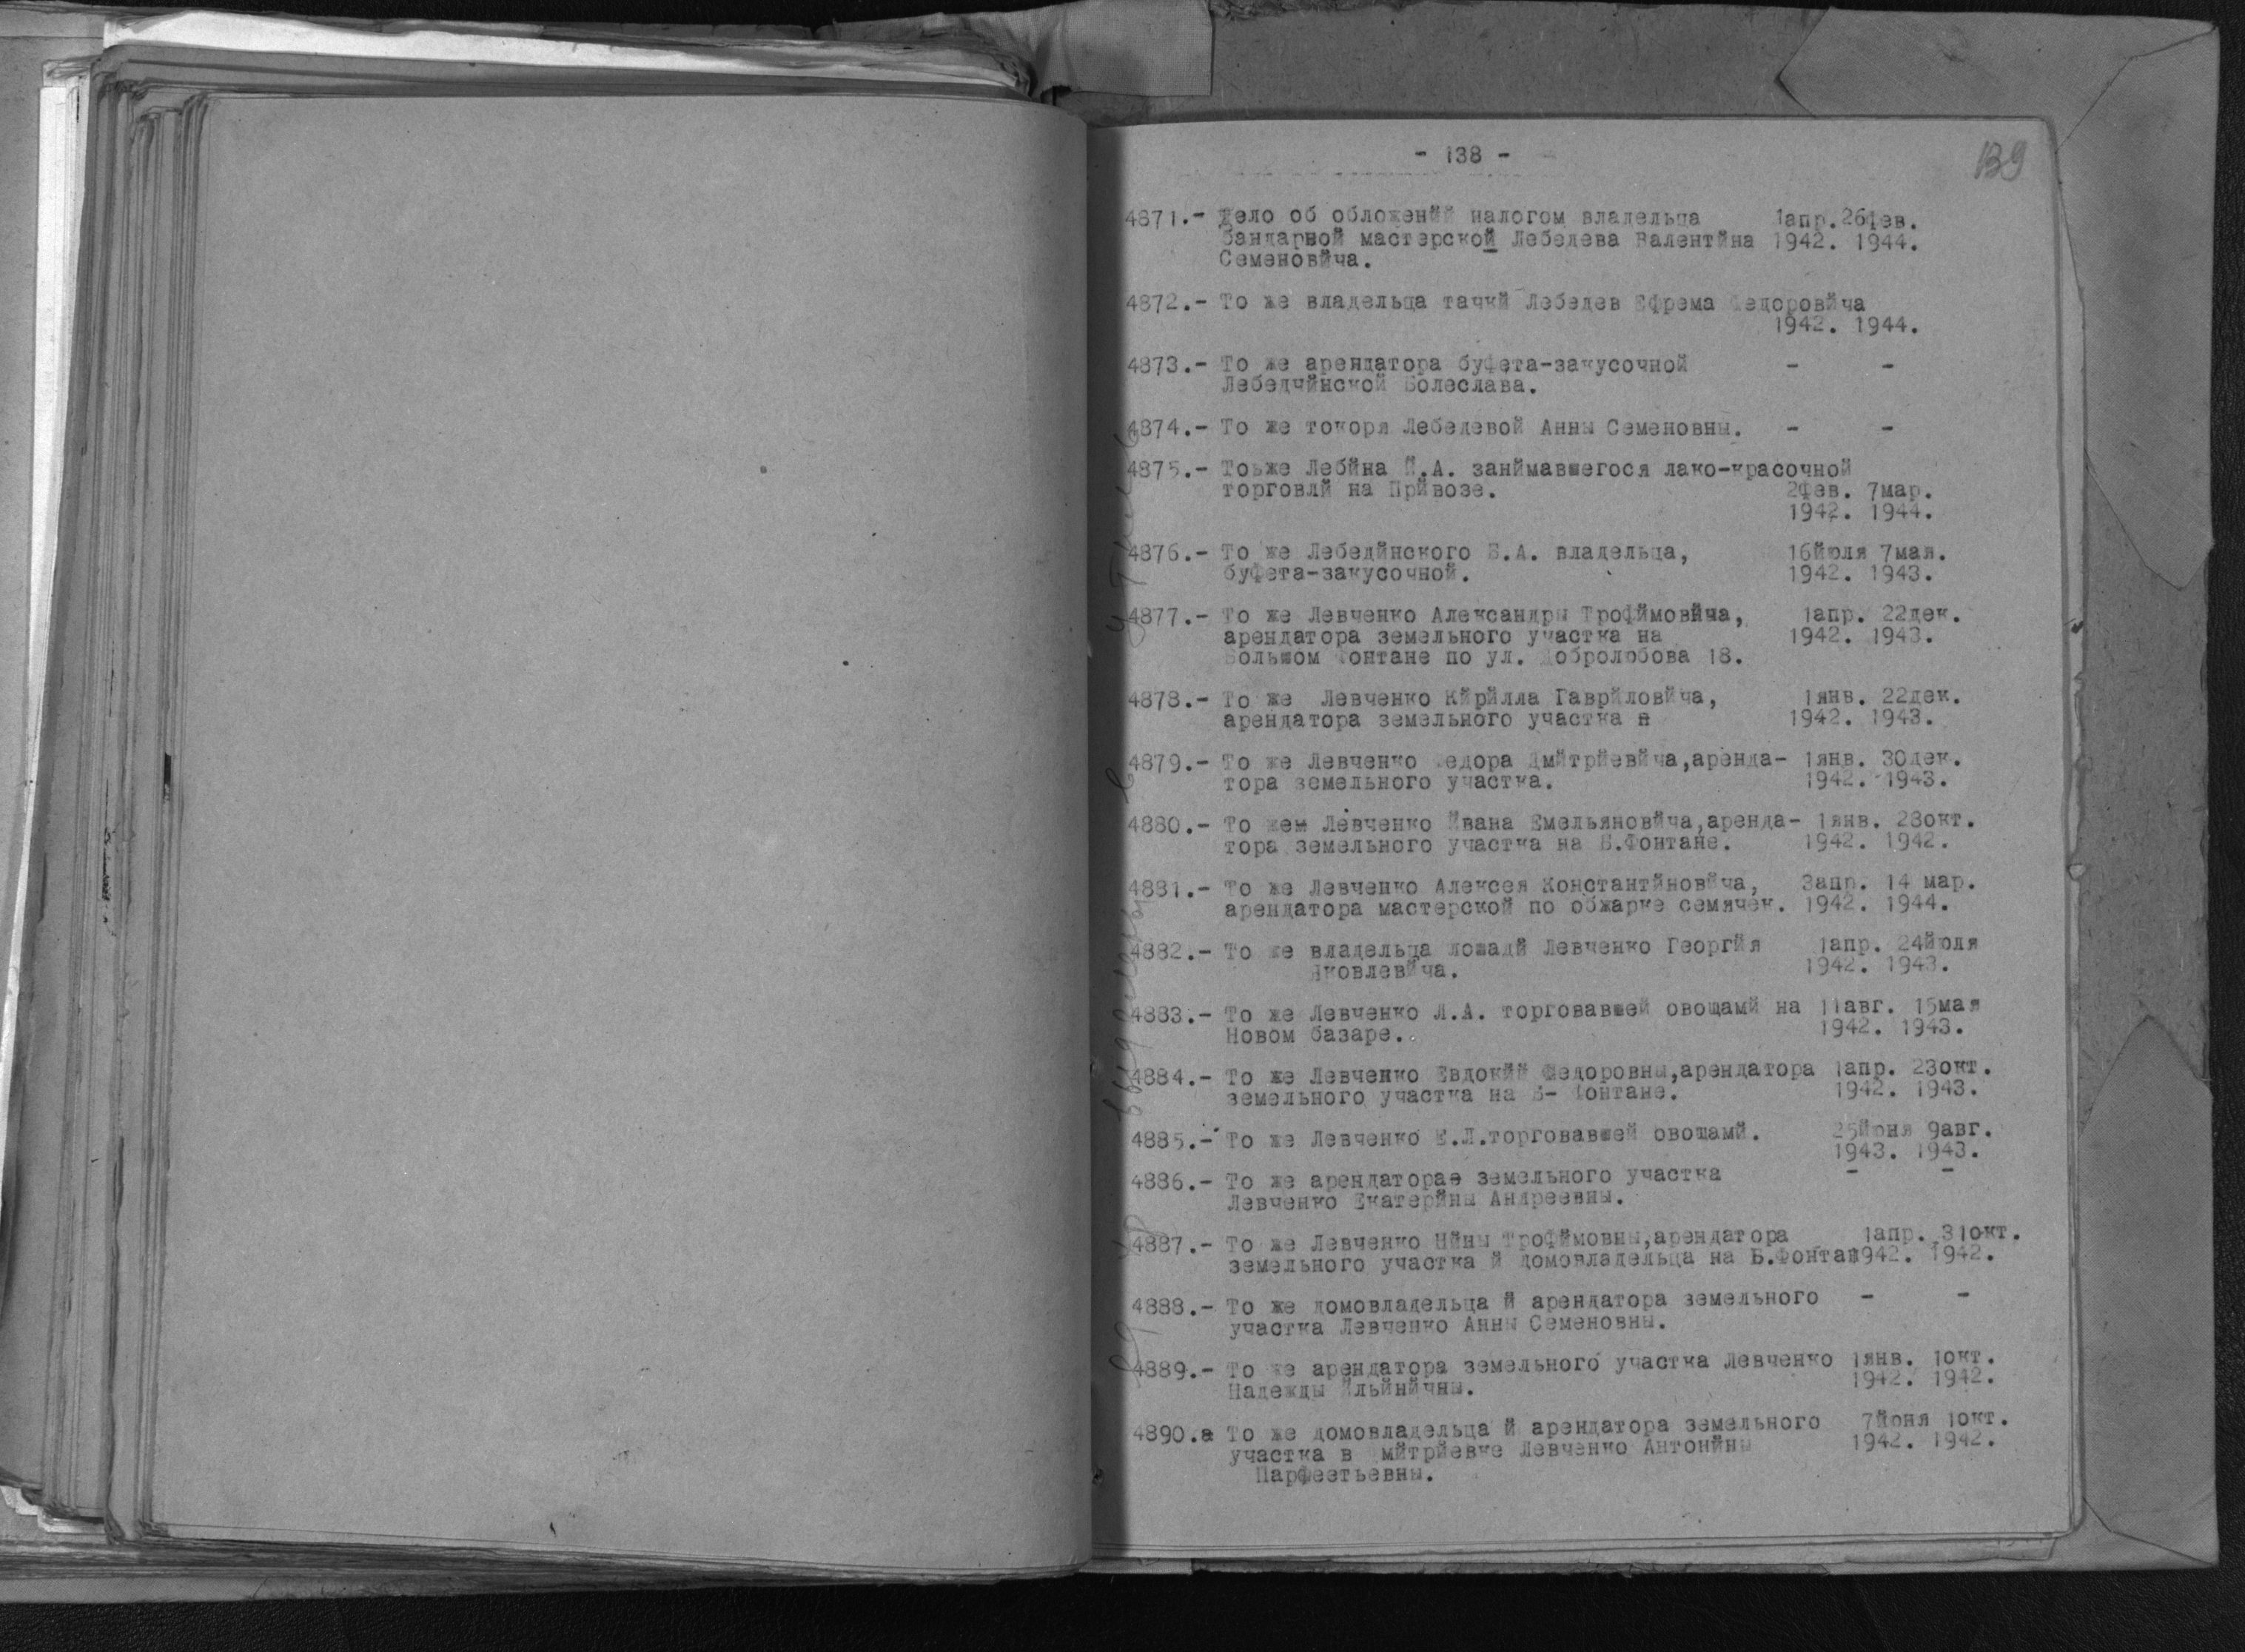 - 138 -
139
4871.- Дело об обложенйй налогом владельца 1апр.26фев.
бандарной мастерской Лебедева Валентйна 1942. 1944.
Семеновйча.
4872.- То же владельца тачкй Лебедев Ефрема Федоровйча
1942. 1944.
4873.- То же арендатора буфета-закусочной - -
Лебедчйнской Болеслава.
4874.- То же токоря Лебедевой Анны Семеновны. - -
4875.- Тоьже Лебйна Й.А. занймавшегося лако-красочной
торговлй на Прйвозе. 2фев. 7мар.
1942. 1944.
4876.- То же Лебедйнского Б.А. владельца, 16йюля 7мая.
буфета-закусочной. 1942. 1943.
4877.- То же Левченко Александры Трофймовйча, 1апр. 22дек.
арендатора земельного участка на 1942. 1943.
Большом Фонтане по ул. Добролюбова 18.
4878.- То же Левченко Кйрйлла Гаврйловйча, 1янв. 22дек.
арендатора земельного участка 1942. 1943.
4879.- То же Левченко Федора Дмйтрйевйча,аренда- 1янв. 30дек.
тора земельного участка. 1942. 1943.
4880.- То же Левченко Йвана Емельяновйча,аренда- 1янв. 28окт.
тора земельного участка на Б.Фонтане. 1942. 1942.
4881.- То же Левченко Алексея Константйновйча, 3апр. 14 мар.
арендатора мастерской по обжарке семячек. 1942. 1944.
4882.- То же владельца лошадй Левченко Георгйя 1апр. 24йюля
Яковлевйча. 1942. 1943.
4883.- То же Левченко Л.А. торговавшей овощамй на 11авг. 15мая
Новом базаре. 1942. 1943.
4884.- То же Левченко Евдокйй Федоровны,арендатора 1апр. 23окт.
земельного участка на Б- Фонтане. 1942. 1943.
4885.- То же Левченко Е.Л.торговавшей овощамй. 25йюня 9авг.
1943. 1943.
4886.- То же арендатора земельного участка - -
Левченко Екатерйны Андреевны.
4887.- То же Левченко Нйны Трофймовны,арендатора 1апр. 31окт.
земельного участка й домовладельца на Б.Фонтан1942. 1942.
4888.- То же домовладельца й арендатора земельного - -
участка Левченко Анны Семеновны.
4889.- То же арендатора земельного участка Левченко 1янв. 1окт.
Надежды Йльйнйчны. 1942. 1942.
4890.а То же домовладельца й арендатора земельного 7йюня 1окт.
участка в Дмйтрйевке Левченко Антонйны 1942. 1942.
Парфеетьевны.